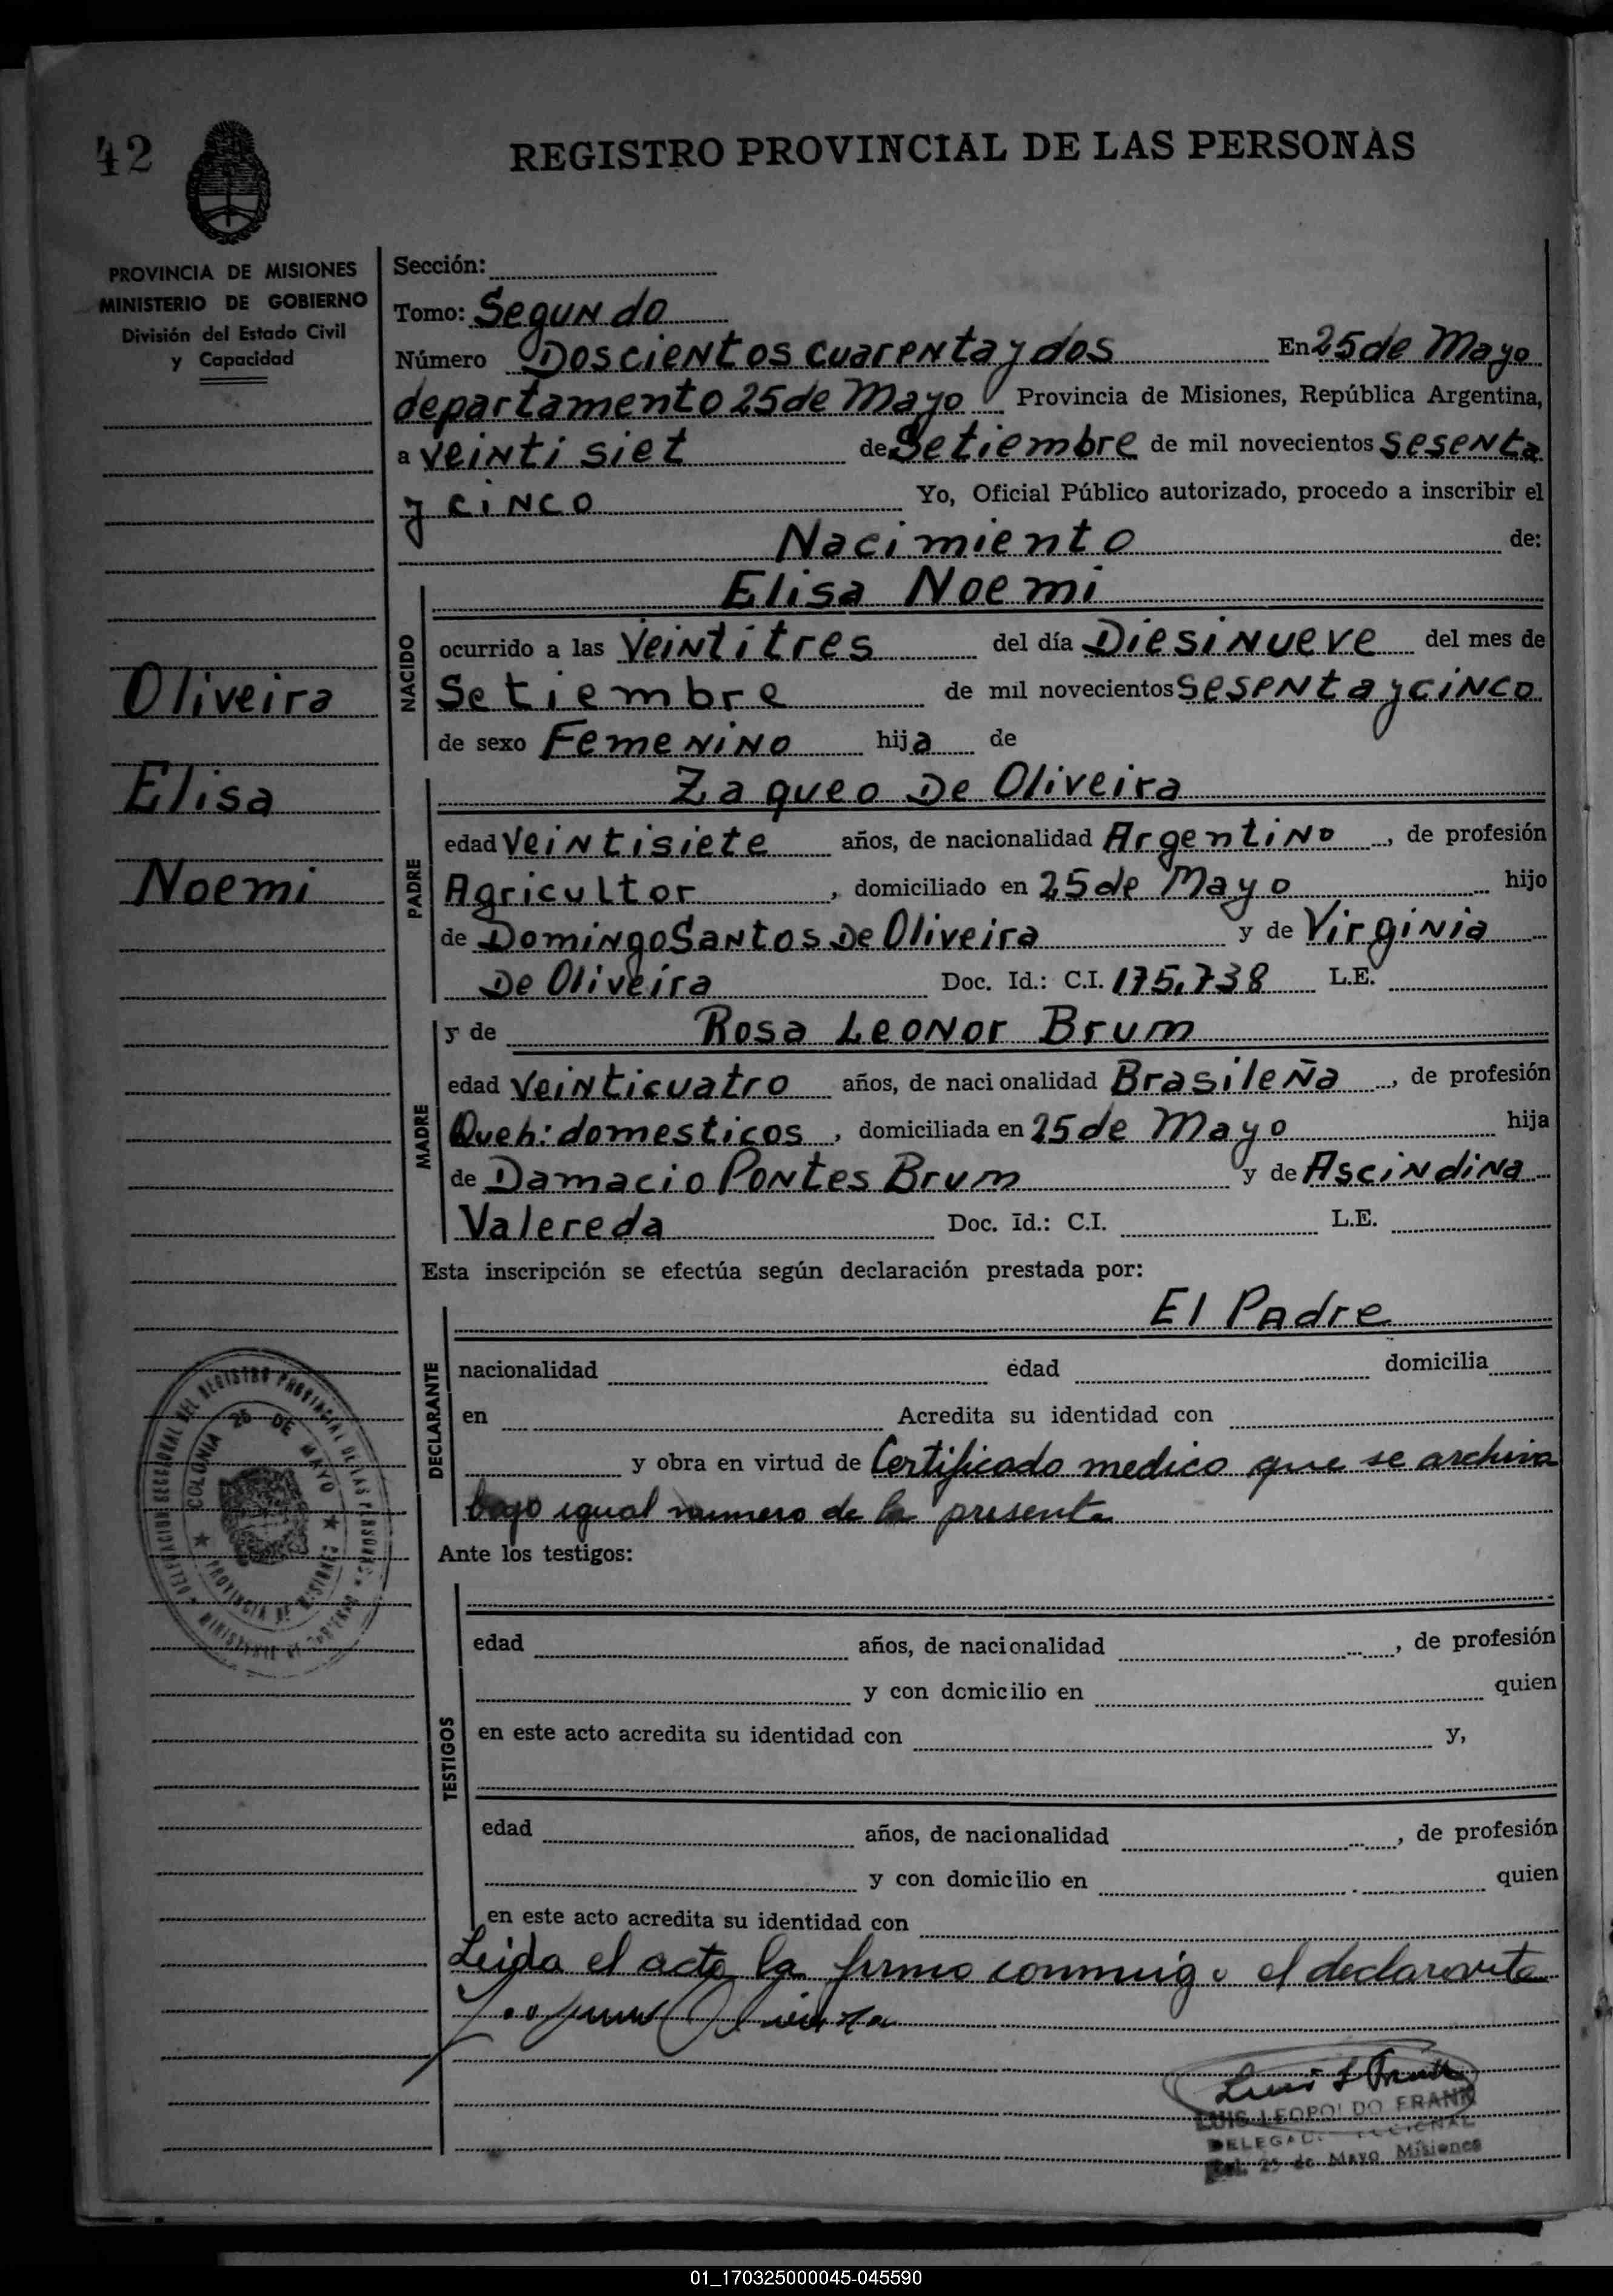 42
REGISTRO PROVINCIAL DE LAS PERSONAS
PROVINCIA DE MISIONES
MINISTERIO DE GOBIERNO
División del Estado Civil
y Capacidad
Oliveira
Elisa
Noemi
Sección:
Tomo: Segundo
Número Doscientos cuarenta y dos En 25 de Mayo
departamento 25 de Mayo Provincia de Misiones, República Argentina,
a veinti siet de Setiembre de mil novecientos sesenta
y cinco Yo, Oficial Público autorizado, procedo a inscribir el
Nacimiento de:
NACIDO
Elisa Noemi
ocurrido a las veintitres del día Diesinueve del mes de
Setiembre de mil novecientos sesenta y cinco
de sexo Femenino hija de
PADRE
Zaqueo De Oliveira
edad veintisiete años, de nacionalidad Argentino, de profesión
Agricultor, domiciliado en 25 de Mayo hijo
de Domingo Santos De Oliveira y de Virginia
De Oliveira Doc. Id.: C.I. 175.738 L.E.
MADRE
y de Rosa Leonor Brum
edad veinticuatro años, de nacionalidad Brasileña, de profesión
Queh: domesticos, domiciliada en 25 de Mayo hija
de Damacio Pontes Brum y de Ascindina
Valereda Doc. Id.: C.I. L.E.
Esta inscripción se efectúa según declaración prestada por:
DECLARANTE
El Padre
nacionalidad edad domicilia
en Acredita su identidad con
y obra en virtud de Certificado medico que se archiva
bajo igual numero de la presente
Ante los testigos:
TESTIGOS
edad años, de nacionalidad , de profesión
y con domicilio en quien
en este acto acredita su identidad con y,
edad años, de nacionalidad , de profesión
y con domicilio en quien
en este acto acredita su identidad con
Leida el acta la firma conmigo el declarante
DELEGACION SECCIONAL DEL REGISTRO PROVINCIAL DE LAS PERSONAS
COLONIA 25 DE MAYO
PROVINCIA DE MISIONES
LUIS LEOPOLDO FRANK
25 de Mayo Misiones
01_170325000045-045590